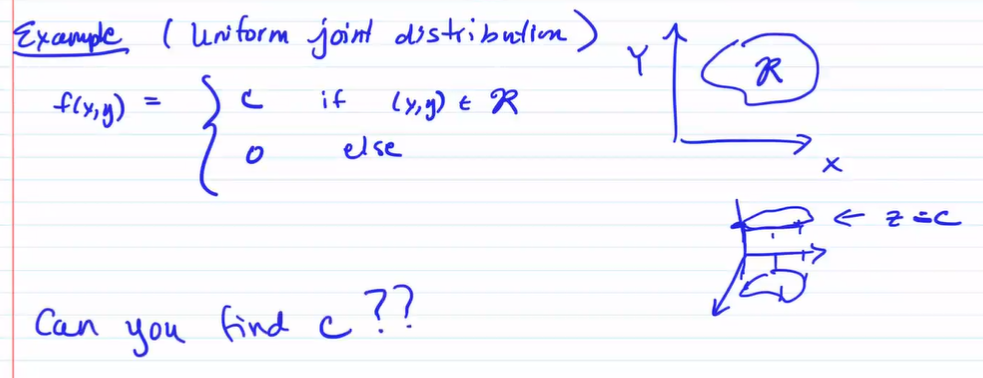 Example (Uniform joint distribution)
f(x,y) = { c if (x,y) ∈ R
0 else
Y
R
X
← z = c
Can you find c ??